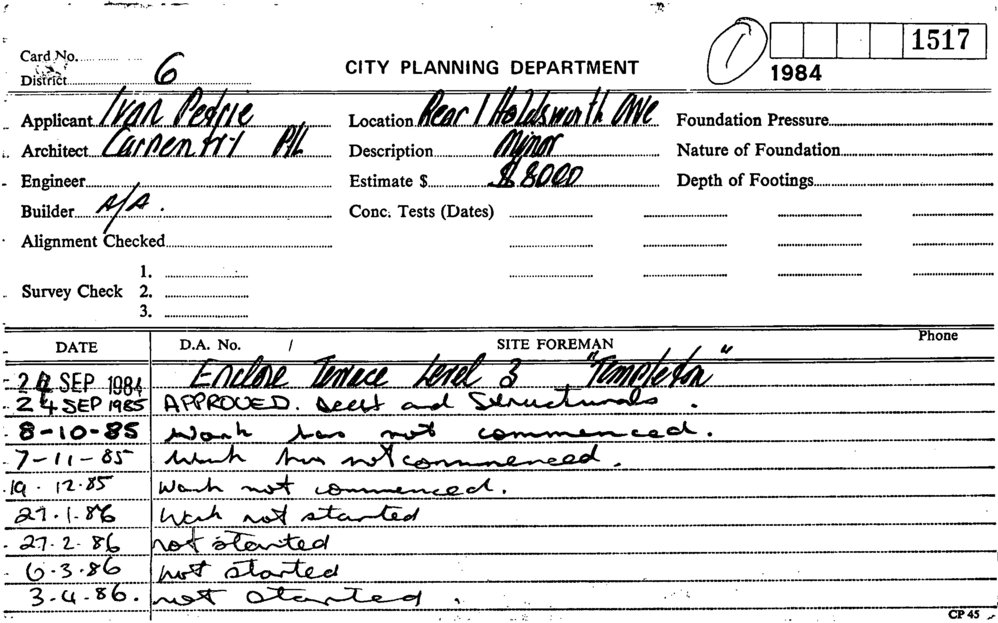 Card No.
1 1517
District 6 CITY PLANNING DEPARTMENT 1984
Applicant Ivan Petrie Location Rear 1 Holdsworth Ave Foundation Pressure
Architect P/L Description Minor Nature of Foundation
Engineer Estimate $ $8000 Depth of Footings
Builder A/A. Conc. Tests (Dates)
Alignment Checked
1.
Survey Check 2.
3.
DATE D.A. No. / SITE FOREMAN Phone
24 SEP 1984 Enclose Terrace Level 3 "Templeton"
24 SEP 1985 APPROVED. and Structurals.
8-10-85 Work has not commenced.
7-11-85 Work has not commenced.
19.12.85 Work not commenced.
27.1.86 Work not started
27.2.86 not started
6.3.86 not started
3.4.86. not started.
CP 45